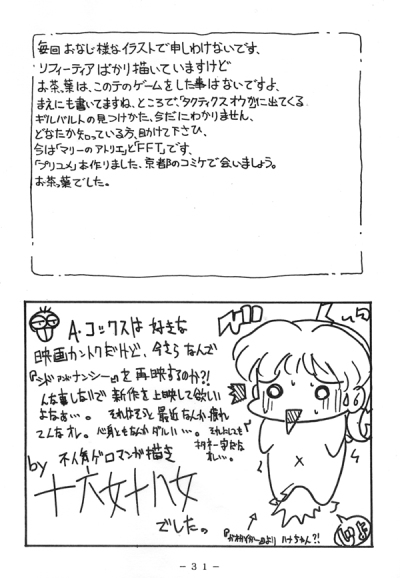 毎回おなじ様なイラストで申しわけないです、
ソフィーティアばかり描いていますけど
お茶葉は、このテのゲームをした事はないですよ、
まえにも書いてますね、ところで、「タクティクスオウガ」に出てくる
ギルバルトの見つけかた、今だにわかりません、
どなたか知っている方、助けて下さひ、
今は「マリーのアトリエ」と「FFT」です、
「プリユメ」本作りました、京都のコミケで会いましょう。
お茶っ葉でした。
A・コックスは 好きな
映画カントクだけど、今さらなんで
『シド アンド ナンシー』を再映するのか?!
んな事しないで 新作を上映して欲しい
よなぁ…。それはそうと 最近 なんか疲れ
てんなオレ。心身ともなんかダルい…。
by 不人気ゲロマンが描き
十六女十八女
でした。
-31-